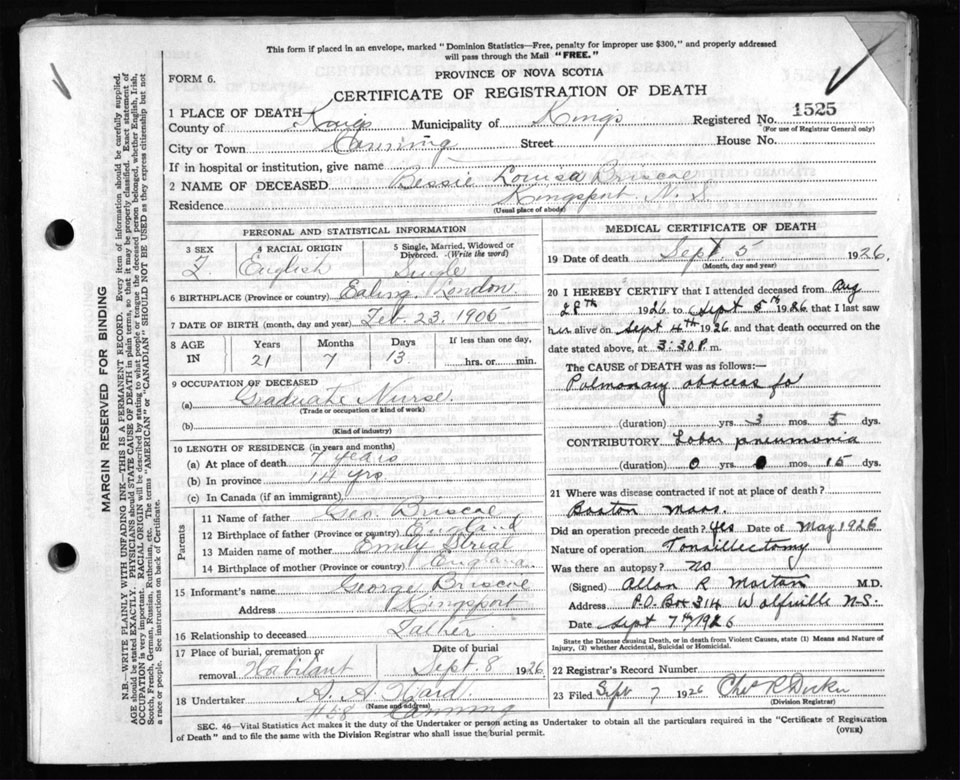 This form if placed in an envelope, marked "Dominion Statistics—Free, penalty for improper use $300," and properly addressed
will pass through the Mail "FREE."
FORM 6.
PROVINCE OF NOVA SCOTIA
CERTIFICATE OF REGISTRATION OF DEATH
1 PLACE OF DEATH
County of Kings Municipality of Kings Registered No. 1525
(For use of Registrar General only)
City or Town Canning Street House No.
If in hospital or institution, give name
2 NAME OF DECEASED Bessie Louisa Briscoe
Residence Kingsport N.S.
(Usual place of abode)
PERSONAL AND STATISTICAL INFORMATION
3 SEX 4 RACIAL ORIGIN 5 Single, Married, Widowed or Divorced. (Write the word)
F. English Single
6 BIRTHPLACE (Province or country) Ealing London
7 DATE OF BIRTH (month, day and year) Feb 23. 1905
8 AGE IN Years Months Days If less than one day,
21 7 13 hrs. or min.
9 OCCUPATION OF DECEASED
(a) Graduate Nurse.
(Trade or occupation or kind of work)
(b)
(Kind of industry)
10 LENGTH OF RESIDENCE (in years and months)
(a) At place of death 7 years
(b) In province 14 yrs.
(c) In Canada (if an immigrant)
Parents
11 Name of father Geo. Briscoe
12 Birthplace of father (Province or country) England
13 Maiden name of mother Emily
14 Birthplace of mother (Province or country) England
15 Informant's name George Briscoe
Address Kingsport
16 Relationship to deceased Father
17 Place of burial, cremation or removal Habitant Date of burial Sept. 8 1926
18 Undertaker A. A. Ward.
(Name and address)
Canning
MEDICAL CERTIFICATE OF DEATH
19 Date of death Sept 5 1926.
(Month, day and year)
20 I HEREBY CERTIFY that I attended deceased from Aug
28th 1926 to Sept 5th 1926 that I last saw
her alive on Sept 4th 1926 and that death occurred on the
date stated above, at 3:30 P. m.
The CAUSE OF DEATH was as follows:—
Pulmonary abscess fo
(duration) yrs. 3 mos. 5 dys.
CONTRIBUTORY Lobar pneumonia
(duration) 0 yrs. 0 mos. 15 dys.
21 Where was disease contracted if not at place of death?
Boston Mass.
Did an operation precede death? Yes Date of May 1926
Nature of operation Tonsillectomy
Was there an autopsy? No
(Signed) Allan R Morton M.D.
Address P.O. Box 314 Wolfville N.S.
Date Sept 7th 1926
State the Disease causing Death, or in death from Violent Causes, state (1) Means and Nature of
Injury, (2) whether Accidental, Suicidal or Homicidal.
22 Registrar's Record Number
23 Filed Sept 7 1926 Chas R
(Division Registrar)
SEC. 46—Vital Statistics Act makes it the duty of the Undertaker or person acting as Undertaker to obtain all the particulars required in the "Certificate of Registration
of Death" and to file the same with the Division Registrar who shall issue the burial permit.
(OVER)
MARGIN RESERVED FOR BINDING
N.B.—WRITE PLAINLY WITH UNFADING INK—THIS IS A PERMANENT RECORD. Every item of information should be carefully supplied.
AGE should be stated EXACTLY. PHYSICIANS should STATE CAUSE OF DEATH in plain terms, so that it may be properly classified. Exact statement of
OCCUPATION is very important. RACIAL ORIGIN will be described by stating to what people or tongue the deceased person belonged, whether English, Irish,
Scotch, French, German, Russian, Ruthenian, etc. The terms "AMERICAN" or "CANADIAN" SHOULD NOT BE USED as they express citizenship but not
a race or people. See instructions on back of Certificate.